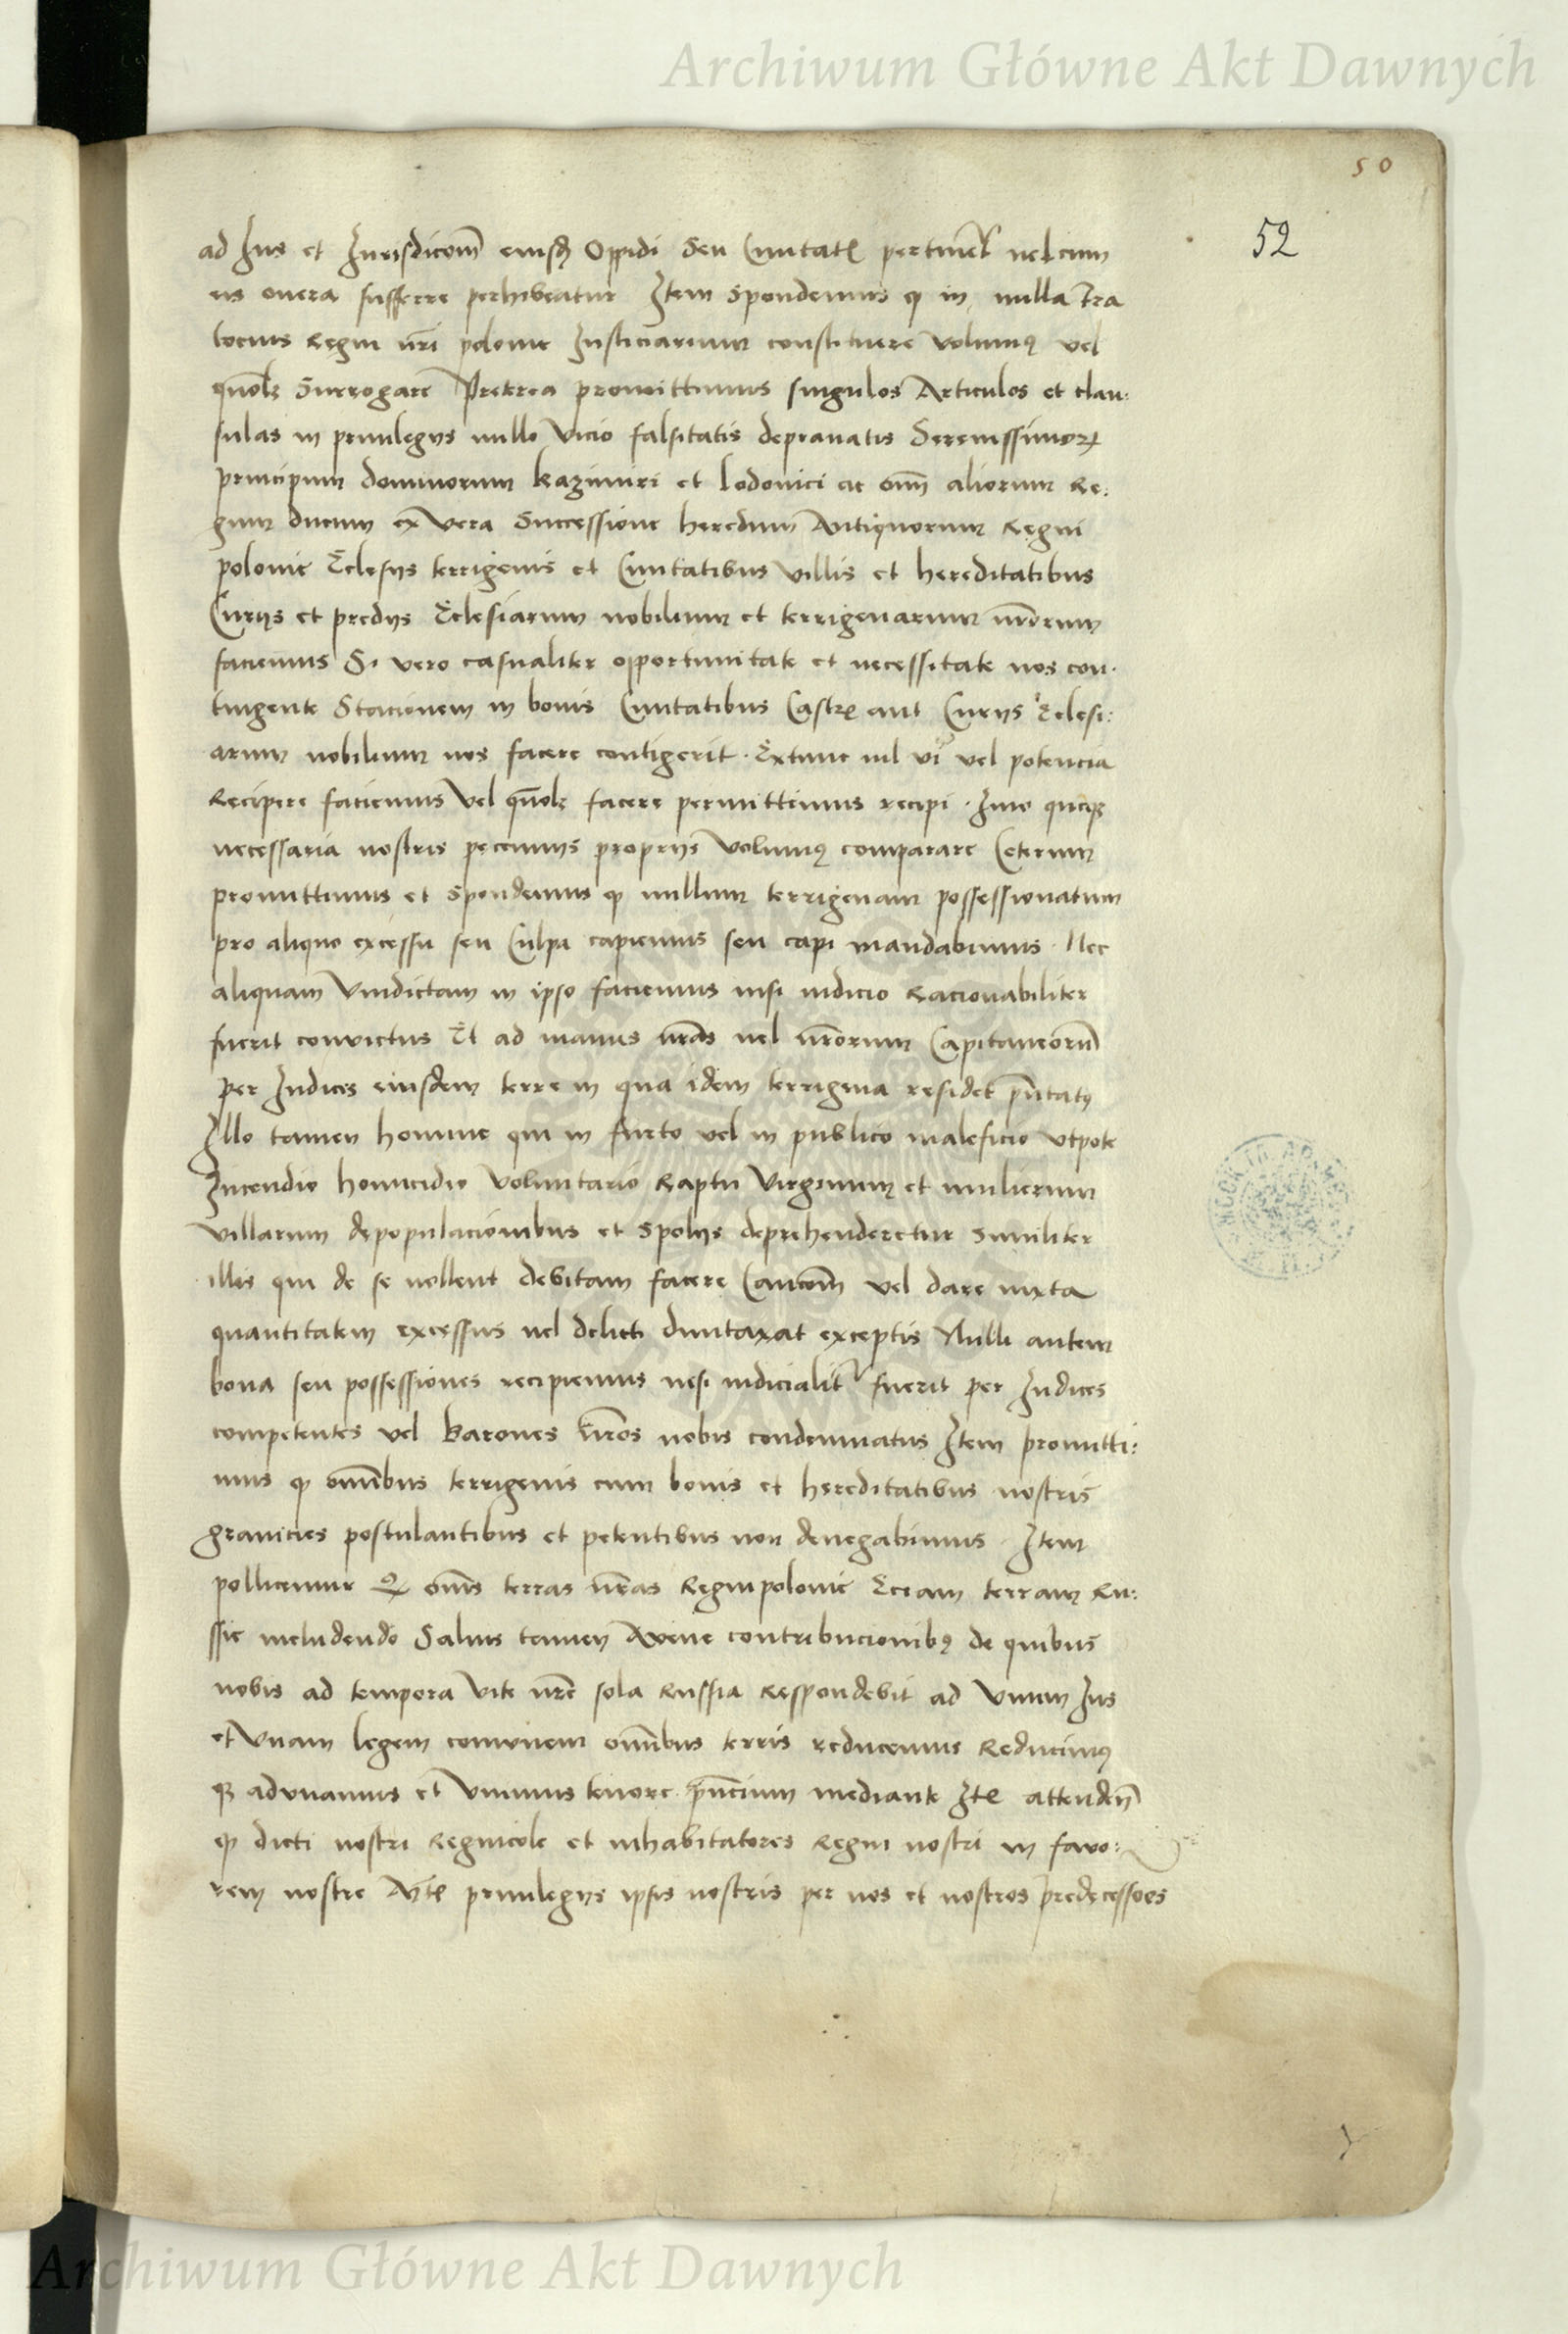 Archiwum Główne Akt Dawnych
50
52
ad Jus et Jurisdicōm eiusdꝫ Oppidi Seu Civitatꝭ pertinēt vel cum
eis onera sufferre perhibeatur Item Spondemus ꝙ in nulla Tra
tocius Regni nr̄i polonie Justiciarium constituere volumꝰ vel
quōlꝫ Surrogare Preterea promittimus singulos Articulos et clau:
sulas in privilegijs nullo vicio falsitatis depravatis Serenissimorꝝ
principum dominorum Kazimiri et Lodovici ac om̄ aliorum Re:
gum ducum ex vera Successione heredum Antiquorum Regni
polonie Eclesijs terrigenis et Civitatibus villis et hereditatibus
Curijs et predijs Eclesiarum nobilium et terrigenarum nr̄orum
faciemus Si vero casualiter opportunitate et necessitate nos con:
tingente Stacionem in bonis Civitatibus Castrꝭ aut Curijs Eclesi:
arum nobilium nos facere contigerit. Extunc nil vi vel potencia
Recipere faciemus vel quōlꝫ facere permittimus recipi. Imo queqꝫ
necessaria nostris pecunijs proprijs volumꝰ comparare Ceterum
promittimus et Spondemus ꝙ nullum terrigenam possessionatum
pro aliquo excessu seu Culpa capiemus seu capi mandabimus. Nec
aliquam vindictam in ipso faciemus nisi iudicio Racionabiliter
fuerit convictus Et ad manus nr̄as vel nr̄orum Capitaneorū
per Judices eiusdem terre in qua idem terrigena residet pn̄tatꝰ
Illo tamen homine qui in furto vel in publico maleficio utpote
Incendio homicidio voluntario Raptu virginum et mulierum
villarum depopulacionibus et Spolijs deprehenderetur Similiter
illis qui de se nollent debitam facere Caucōm vel dare iuxta
quantitatem excessus vel delicti duntaxat exceptis Nulli autem
bona seu possessiones recipiemus nisi iudicialit̾ fuerit per Judices
competentes vel Barones nr̄os nobis condemnatus Item promitti:
mus ꝙ om̄ibus terrigenis cum bonis et hereditatibus nostris
granicies postulantibus et petentibus non denegabimus. Item
pollicemur ꝙ om̄s terras nr̄as Regni polonie Eciam terram Ru:
ssie includendo Salvis tamen Avene contribucionibꝰ de quibus
nobis ad tempora vite nr̄e sola Russia Respondebit ad Unum Jus
et Unam legem comunem om̄ibus terris reducemus Reducimꝰ
qꝫ adunamus et Unimus tenore pn̄cium mediante Itꝭ attenden̄
ꝙ dicti nostri Regnicole et inhabitatores Regni nostri in favo:
rem nostre privilegijs ipsis nostris per nos et nostros predecessoes
Archiwum Główne Akt Dawnych